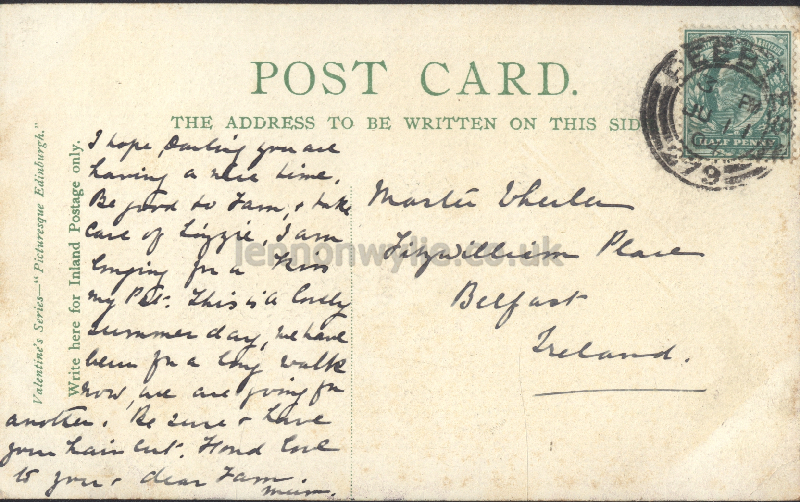 POST CARD.
THE ADDRESS TO BE WRITTEN ON THIS SID
Valentine's Series—"Picturesque Edinburgh."
Write here for Inland Postage only.
I hope, Darling you are
having a nice time.
Be good to Fam, & take
care of Lizzie, I am
longing for a Kiss
my Pet. This is a lovely
summer day, we have
been for a long walk
now, we are going for
another. Be sure & have
your hair cut. Fond love
to you & dear Fam.
Mum.
Master Wheeler
Fitzwilliam Place
Belfast
Ireland.
HALF PENNY
PEEBLES
279
lennonwylie.co.uk